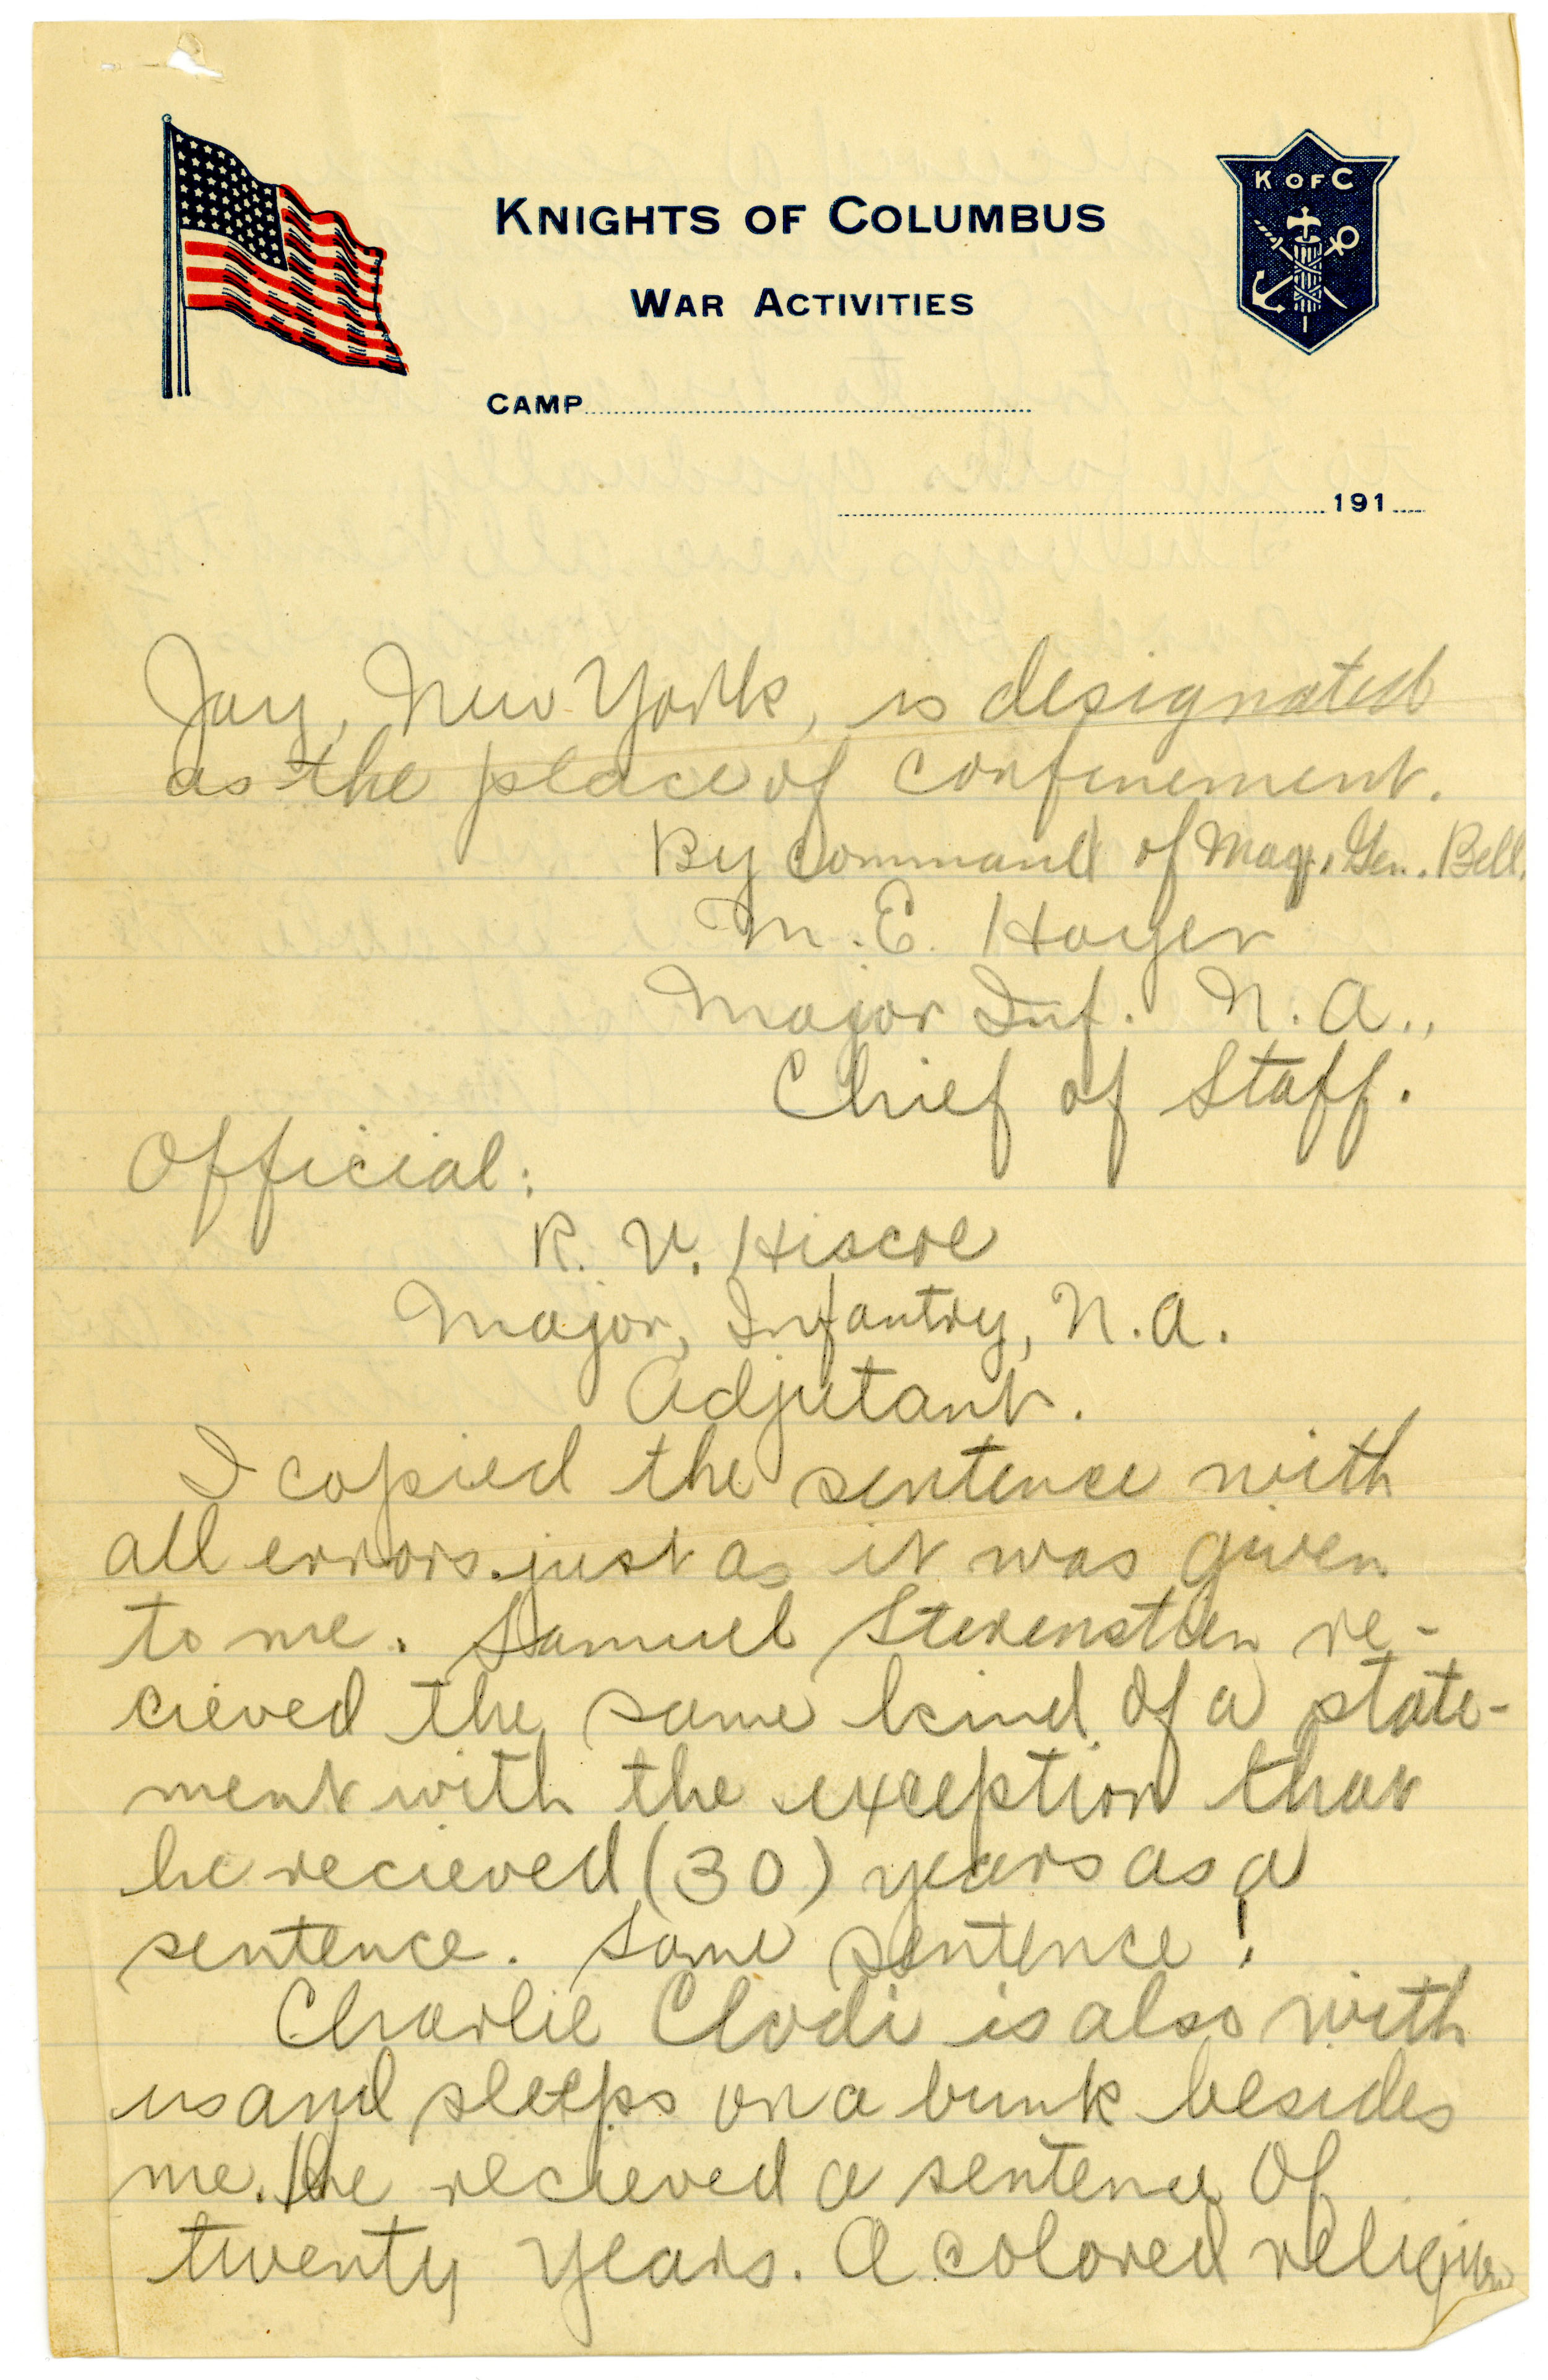 K OF C
KNIGHTS OF COLUMBUS
WAR ACTIVITIES
CAMP
191
Jay, New York, is designated
as the place of confinement.
By Command of Maj. Gen. Bell.
M. E. Hoyer
Major Inf. N. A.,
Chief of Staff.
Official:
R. V. Hiscoe
Major, Infantry, N.A.
Adjutant.
I copied the sentence with
all errors just as it was given
to me. Samuel Sterenstien re-
cieved the same kind of a state-
ment with the exception that
he recieved (30) years as a
sentence. Some sentence!
Charlie Clodi is also with
us and sleeps on a bunk besides
me. He recieved a sentence of
twenty years. A colored